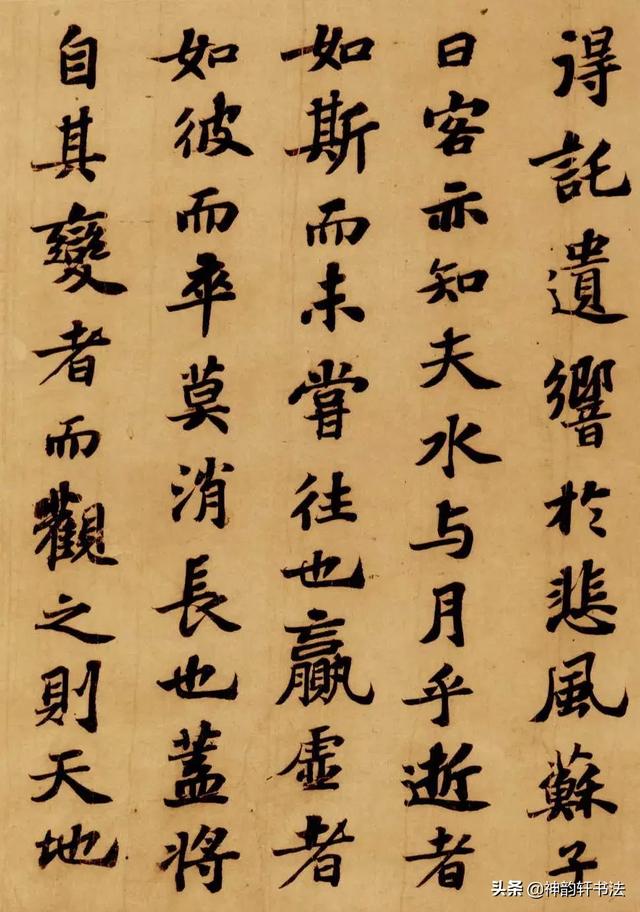 得託遺響於悲風蘇子
曰客亦知夫水与月乎逝者
如斯而未嘗往也贏虛者
如彼而卒莫消長也蓋將
自其變者而觀之則天地
头条 @神韵轩书法